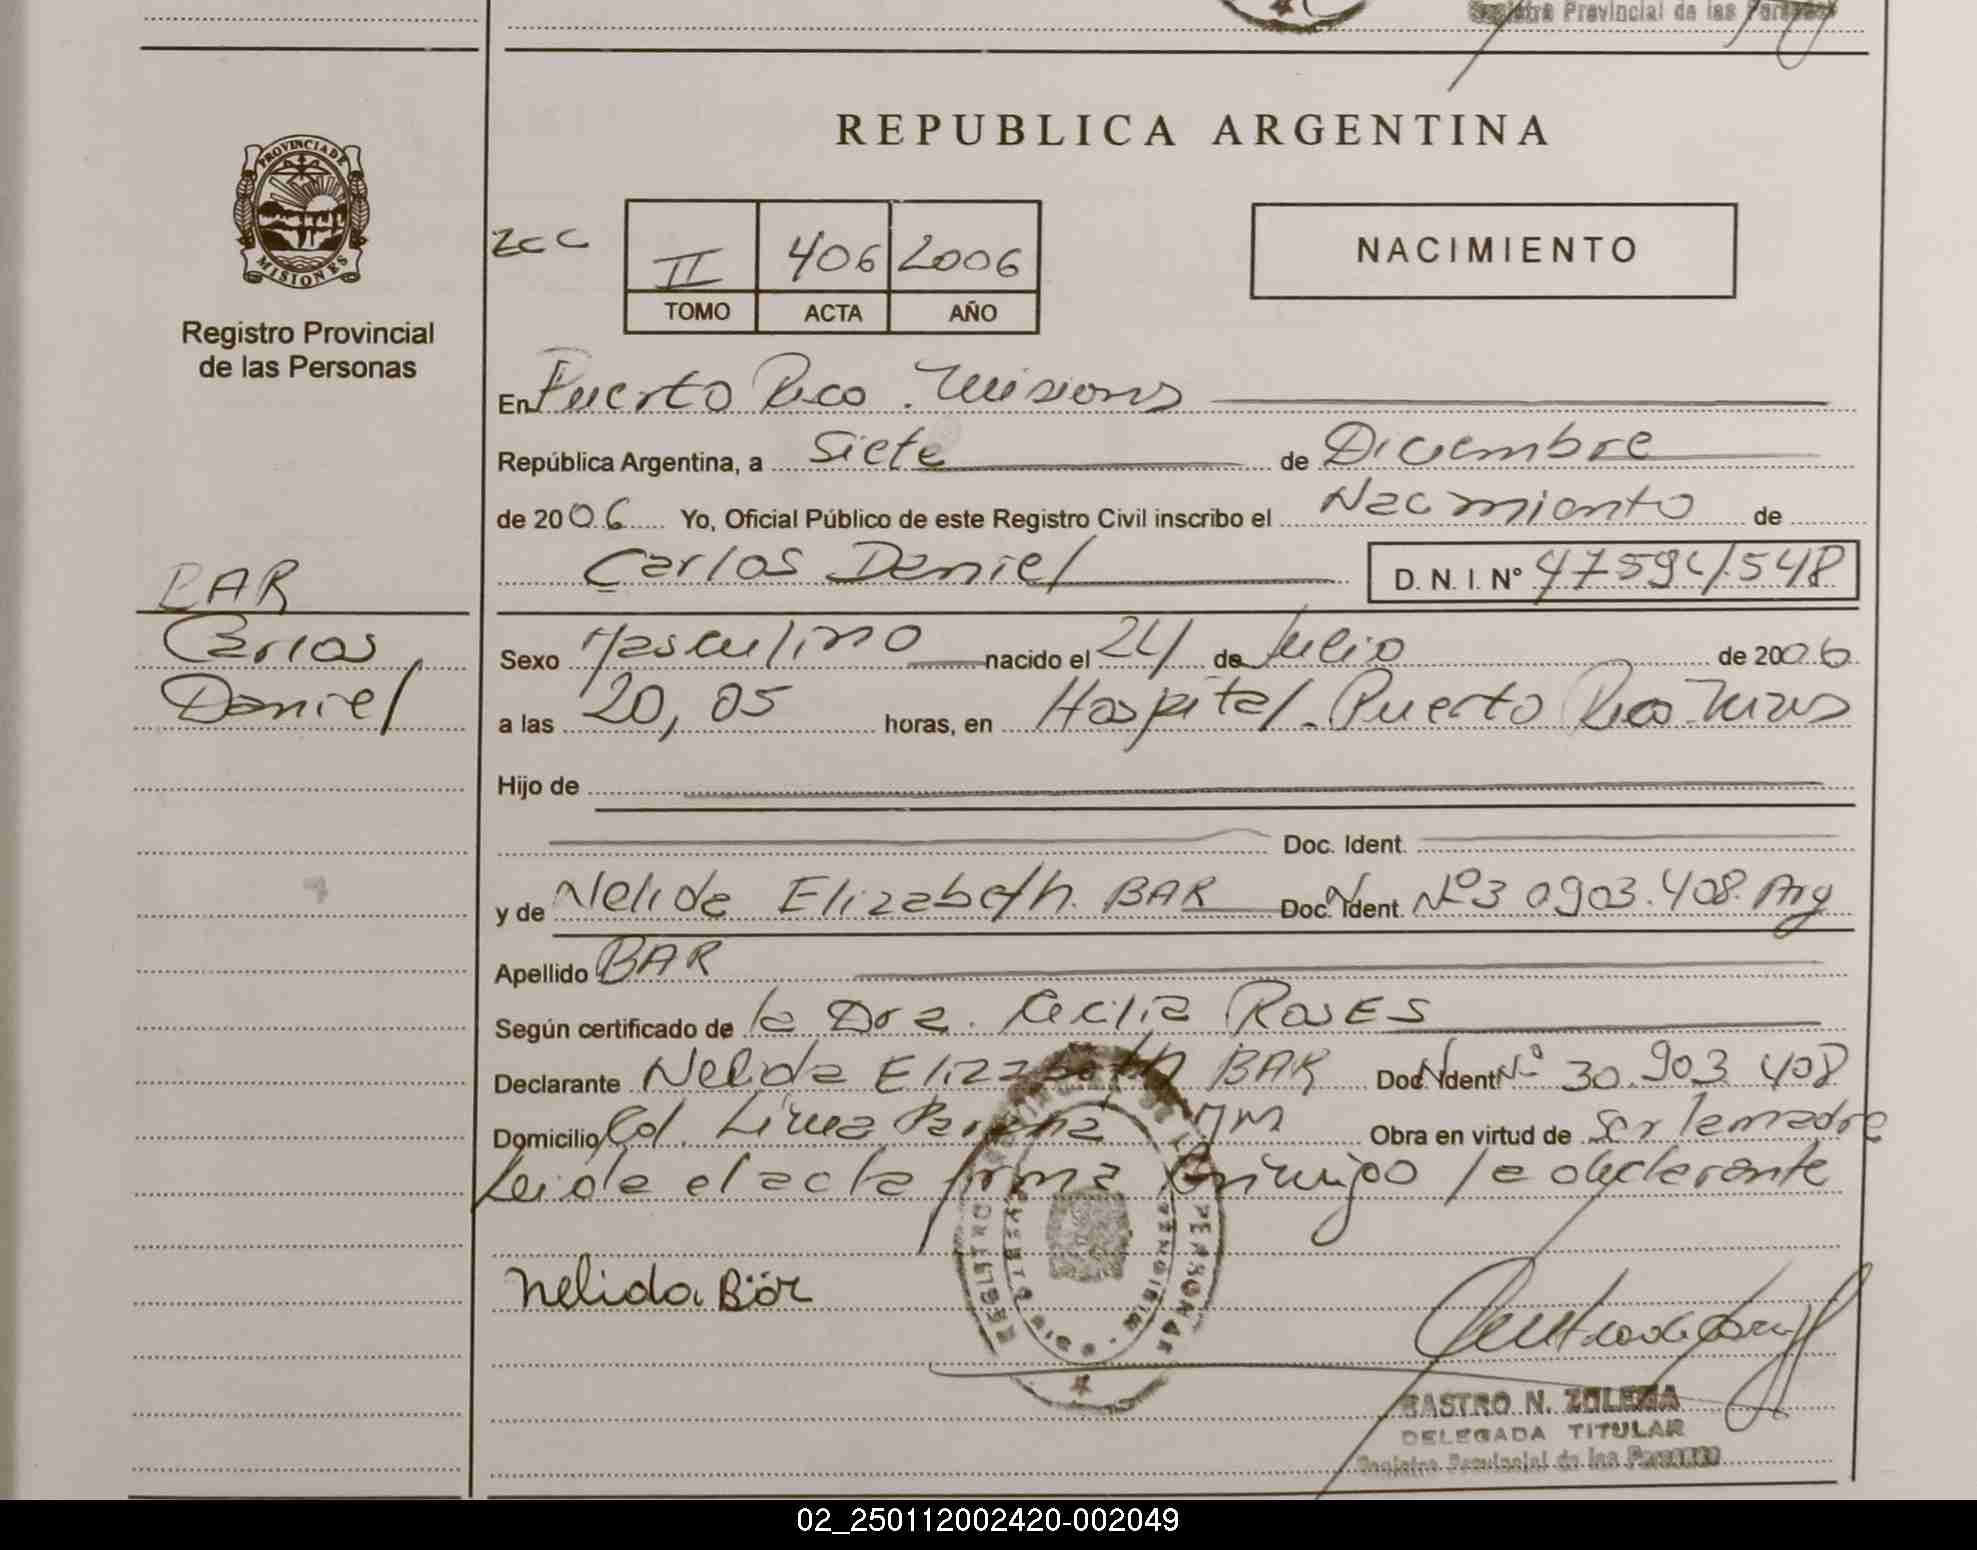 Registro Provincial de las Personas
REPUBLICA ARGENTINA
PROVINCIA DE
MISIONES
Registro Provincial
de las Personas
II 406 2006
TOMO ACTA AÑO
NACIMIENTO
En Puerto Rico. Misiones
República Argentina, a Siete de Diciembre
de 2006 Yo, Oficial Público de este Registro Civil inscribo el Nacimiento de
Carlos Daniel D. N. I. Nº 47594548
BAR
Carlos
Daniel
Sexo Masculino nacido el 24 de Julio de 2006
a las 20,05 horas, en Hospital. Puerto Rico
Hijo de
Doc. Ident.
y de Nelida Elizabeth. BAR Doc. Ident. Nº30903.408. Arg
Apellido BAR
Según certificado de la Dra. Cecilia
Declarante Nelida Elizabeth BAR Doc. Ident. Nº 30.903 408
Domicilio Col. Línea Paraná Obra en virtud de Ser la madre
Leida el acta firma Conmigo la declarante
Nelida Bär
CASTRO N.
DELEGADA TITULAR
Registro Provincial de las Personas
02_250112002420-002049